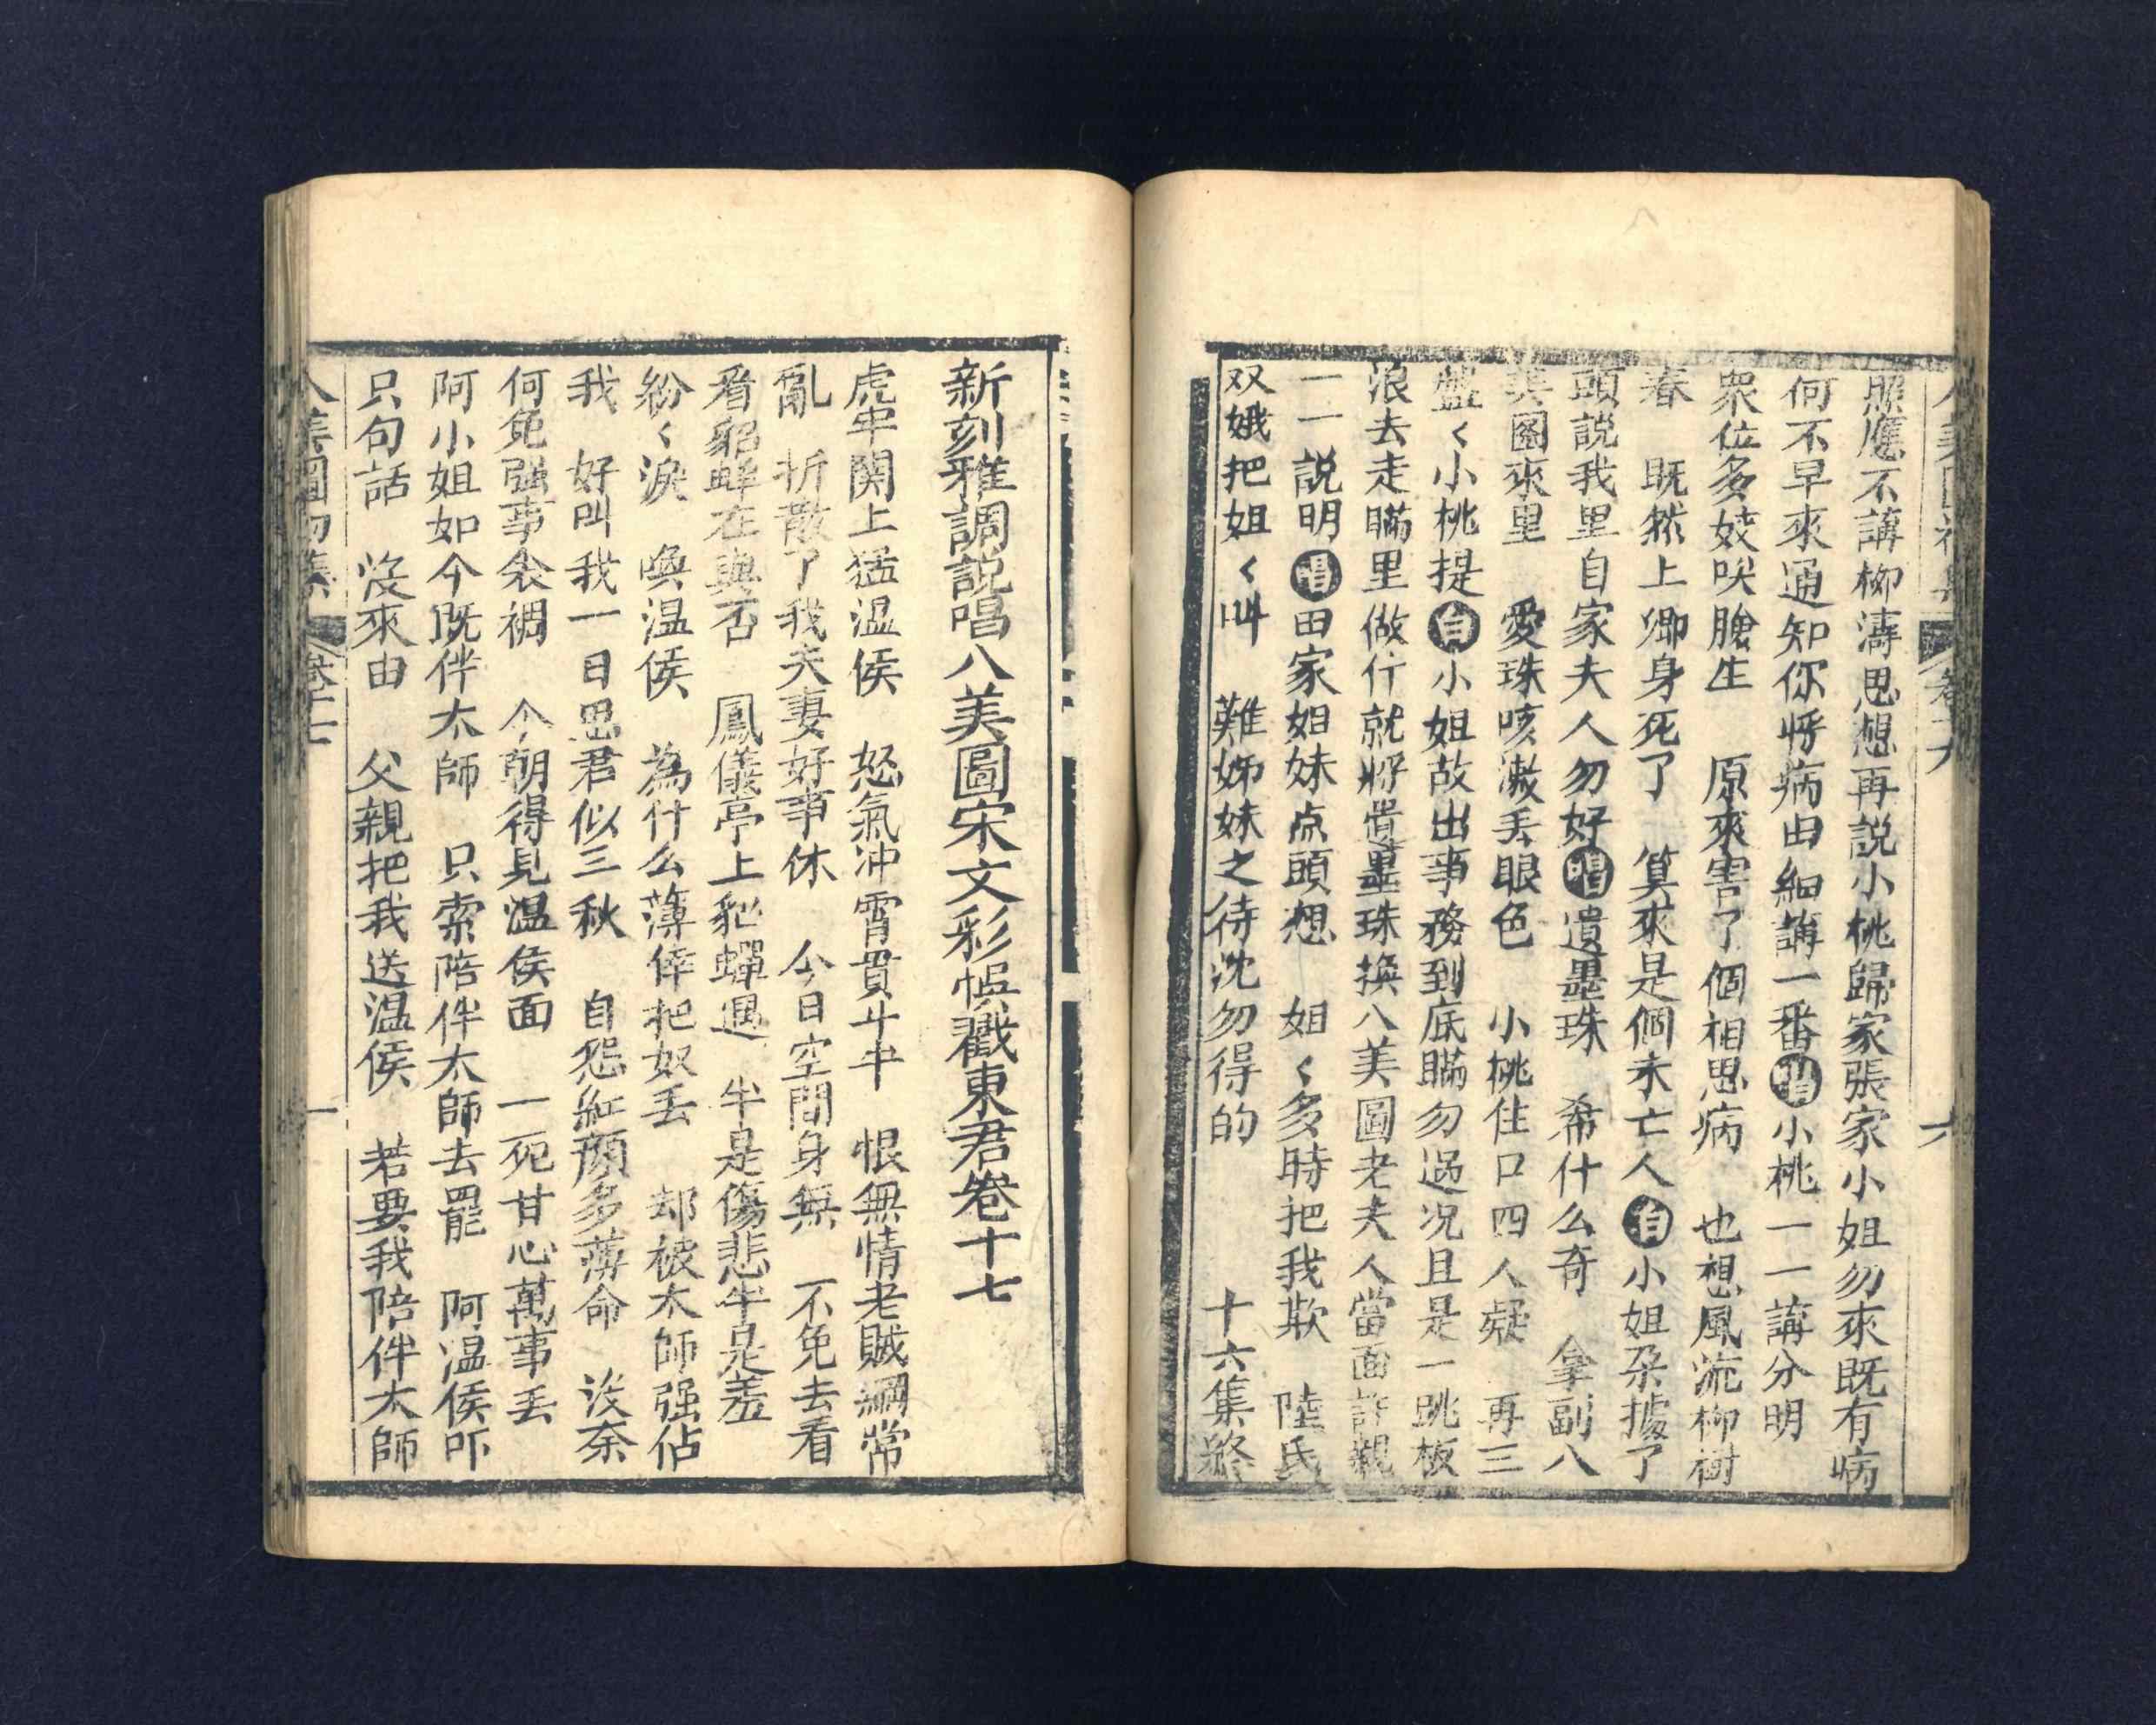 照應不講柳濤思想再説小桃歸家張家小姐勿來既有病
何不早來通知你將病由細講一番唱小桃一一講分明
衆位多姣咲臉生　原來害了個相思病　也想風流柳樹
春　既然上卿身死了　算來是個未亡人白小姐朶據了
頭説我里自家夫人勿好唱遺墨珠　希什么奇　拿副八
美圖來里　愛珠咳漱丢眼色　小桃住口四人疑　再三
盤く小桃提白小姐故出事務到底瞞勿過况且是一跳板
浪去走瞞里做行就將遺墨珠換八美圖老夫人當面許親
一一説明唱田家姐妹点頭想　姐く多時把我欺　陸氏
双娥把姐く叫　難姊妹之待沈勿得的　十六集終
新刻雅調説唱八美圖宋文彩悞戳東君卷十七
虎牢関上猛温侯　怒氣冲霄貫斗牛　恨無情老賊綱常
亂　折散了我夫妻好事休　今日空閒身無　不免去看
看貂蟬在與否　鳳儀亭上貂蟬遇　半是傷悲半是羞
紛く淚　喚温侯　為什么薄倖把奴丢　却被太師强佔
我　好叫我一日思君似三秋　自怨紅顔多薄命　没奈
何免强事衾裯　今朝得見温侯面　一死甘心萬事丢
阿小姐如今既伴太師　只索陪伴太師去罷　阿温侯吓
只句話　没來由　父親把我送温侯　若要我陪伴太師
八美圖初集　卷十七　一